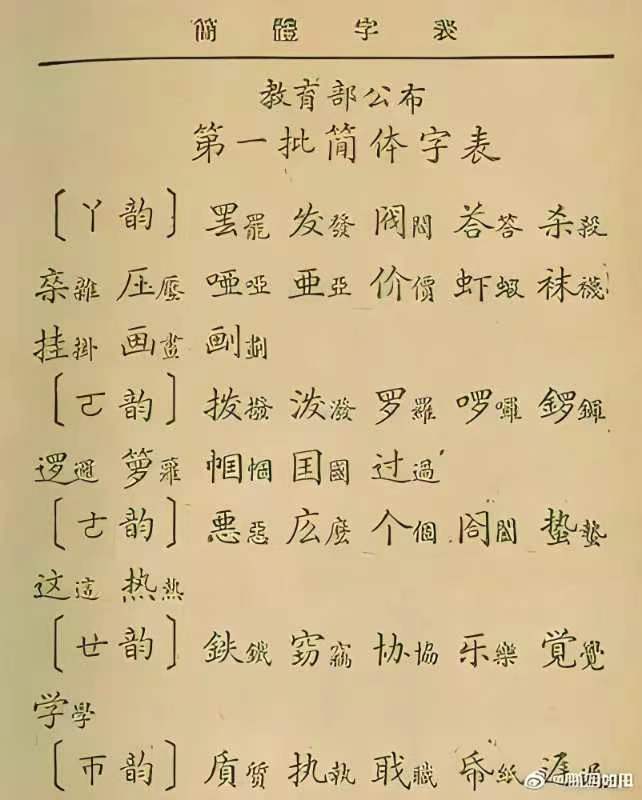 簡體字表
教育部公布
第一批简体字表
[ㄚ韵] 罢罷 发發 阀閥 荅答 杀殺
杂雜 压壓 唖啞 亜亞 价價 虾蝦 袜襪
挂掛 画畫 劃
[ㄛ韵] 拨撥 泼潑 罗羅 啰囉 锣鑼
逻邏 箩籮 帼幗 囯國 过過
[ㄜ韵] 悪惡 庅麼 个個 阁閣 蛰蟄
这這 热熱
[ㄝ韵] 鉄鐵 窃竊 协協 乐樂 覚覺
学學
[帀韵] 质質 执執 职職 帋紙